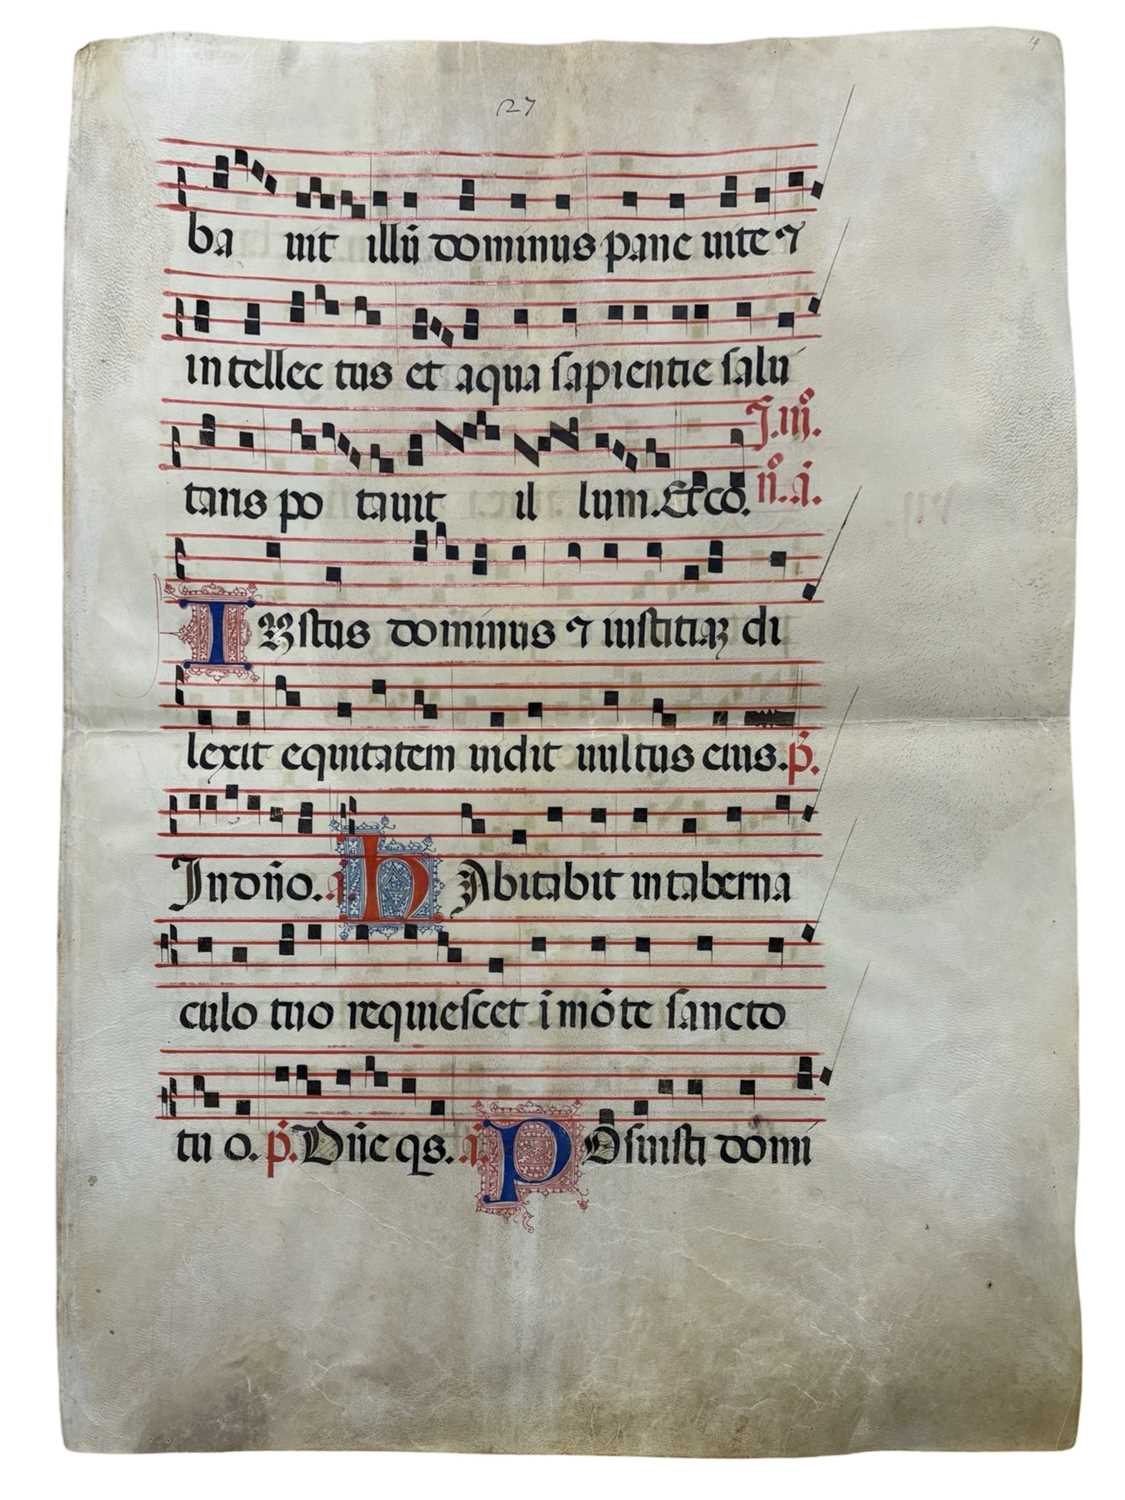 27
ba uit illū dominus pane uite ⁊
intellec tus et aqua sapientie salu
taris po tauit il lum. Et cō. J. iij̊.
n̊. a.
IUstus dominus ⁊ iustitiaȝ di
lexit equitatem uidit uultus eius. p̄.
In dn̄o. a. hAbitabit in taberna
culo tuo requiescet ī mōte sancto
tu o. p̄. Dn̄e qs. a. POsuisti domi